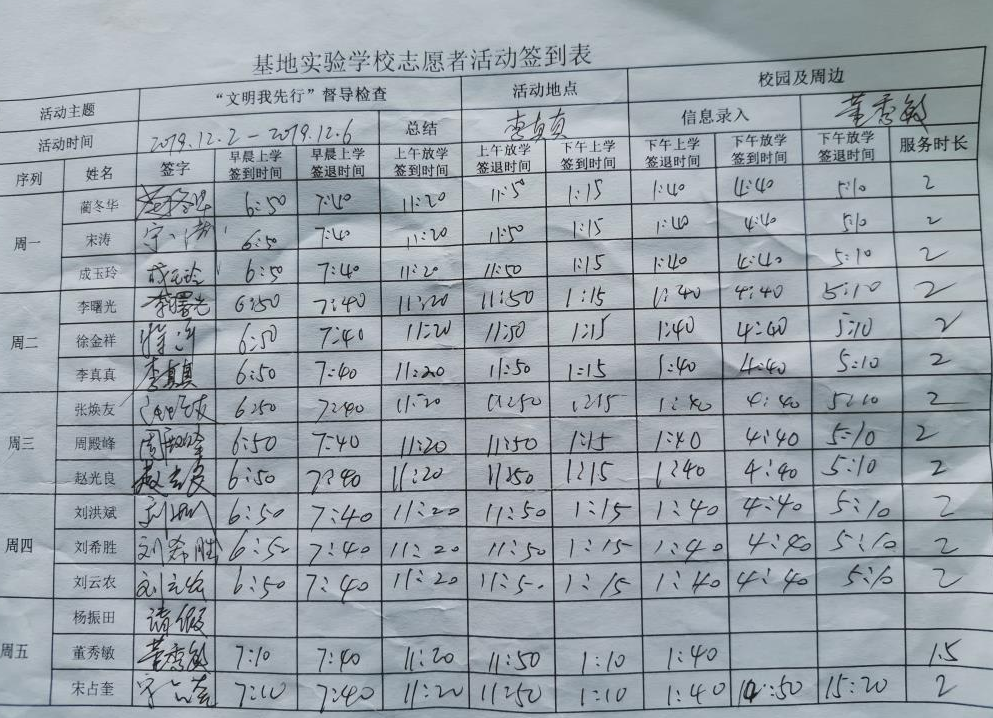 基地实验学校志愿者活动签到表
活动主题 “文明我先行”督导检查 活动地点 校园及周边
活动时间 2019.12.2-2019.12.6 总结 李真真 信息录入 董秀敏
序列 姓名 签字 早晨上学签到时间 早晨上学签退时间 上午放学签到时间 上午放学签退时间 下午上学签到时间 下午上学签退时间 下午放学签到时间 下午放学签退时间 服务时长
周一 蔺冬华 蔺冬华 6:50 7:40 11:20 11:5 1:15 1:40 4:40 5:10 2
宋涛 宋涛 6:50 7:40 11:20 11:50 1:15 1:40 4:40 5:10 2
成玉玲 成玉玲 6:50 7:40 11:20 11:50 1:15 1:40 4:40 5:10 2
周二 李曙光 李曙光 6:50 7:40 11:20 11:50 1:15 1:40 4:40 5:10 2
徐金祥 6:50 7:40 11:20 11:50 1:15 1:40 4:40 5:10 2
李真真 李真真 6:50 7:40 11:20 11:50 1:15 1:40 4:40 5:10 2
周三 张焕友 张焕友 6:50 7:40 11:20 11:50 1:15 1:40 4:40 5:10 2
周殿峰 周殿峰 6:50 7:40 11:20 11:50 1:15 1:40 4:40 5:10 2
赵光良 赵光良 6:50 7:40 11:20 11:50 1:15 1:40 4:40 5:10 2
周四 刘洪斌 6:50 7:40 11:20 11:50 1:15 1:40 4:40 5:10 2
刘希胜 刘希胜 6:50 7:40 11:20 11:50 1:15 1:40 4:40 5:10 2
刘云农 刘云农 6:50 7:40 11:20 11:50 1:15 1:40 4:40 5:10 2
周五 杨振田 请假
董秀敏 董秀敏 7:10 7:40 11:20 11:50 1:10 1:40 1.5
宋占奎 宋占奎 7:10 7:40 11:20 11:50 1:10 1:40 14:50 15:20 2